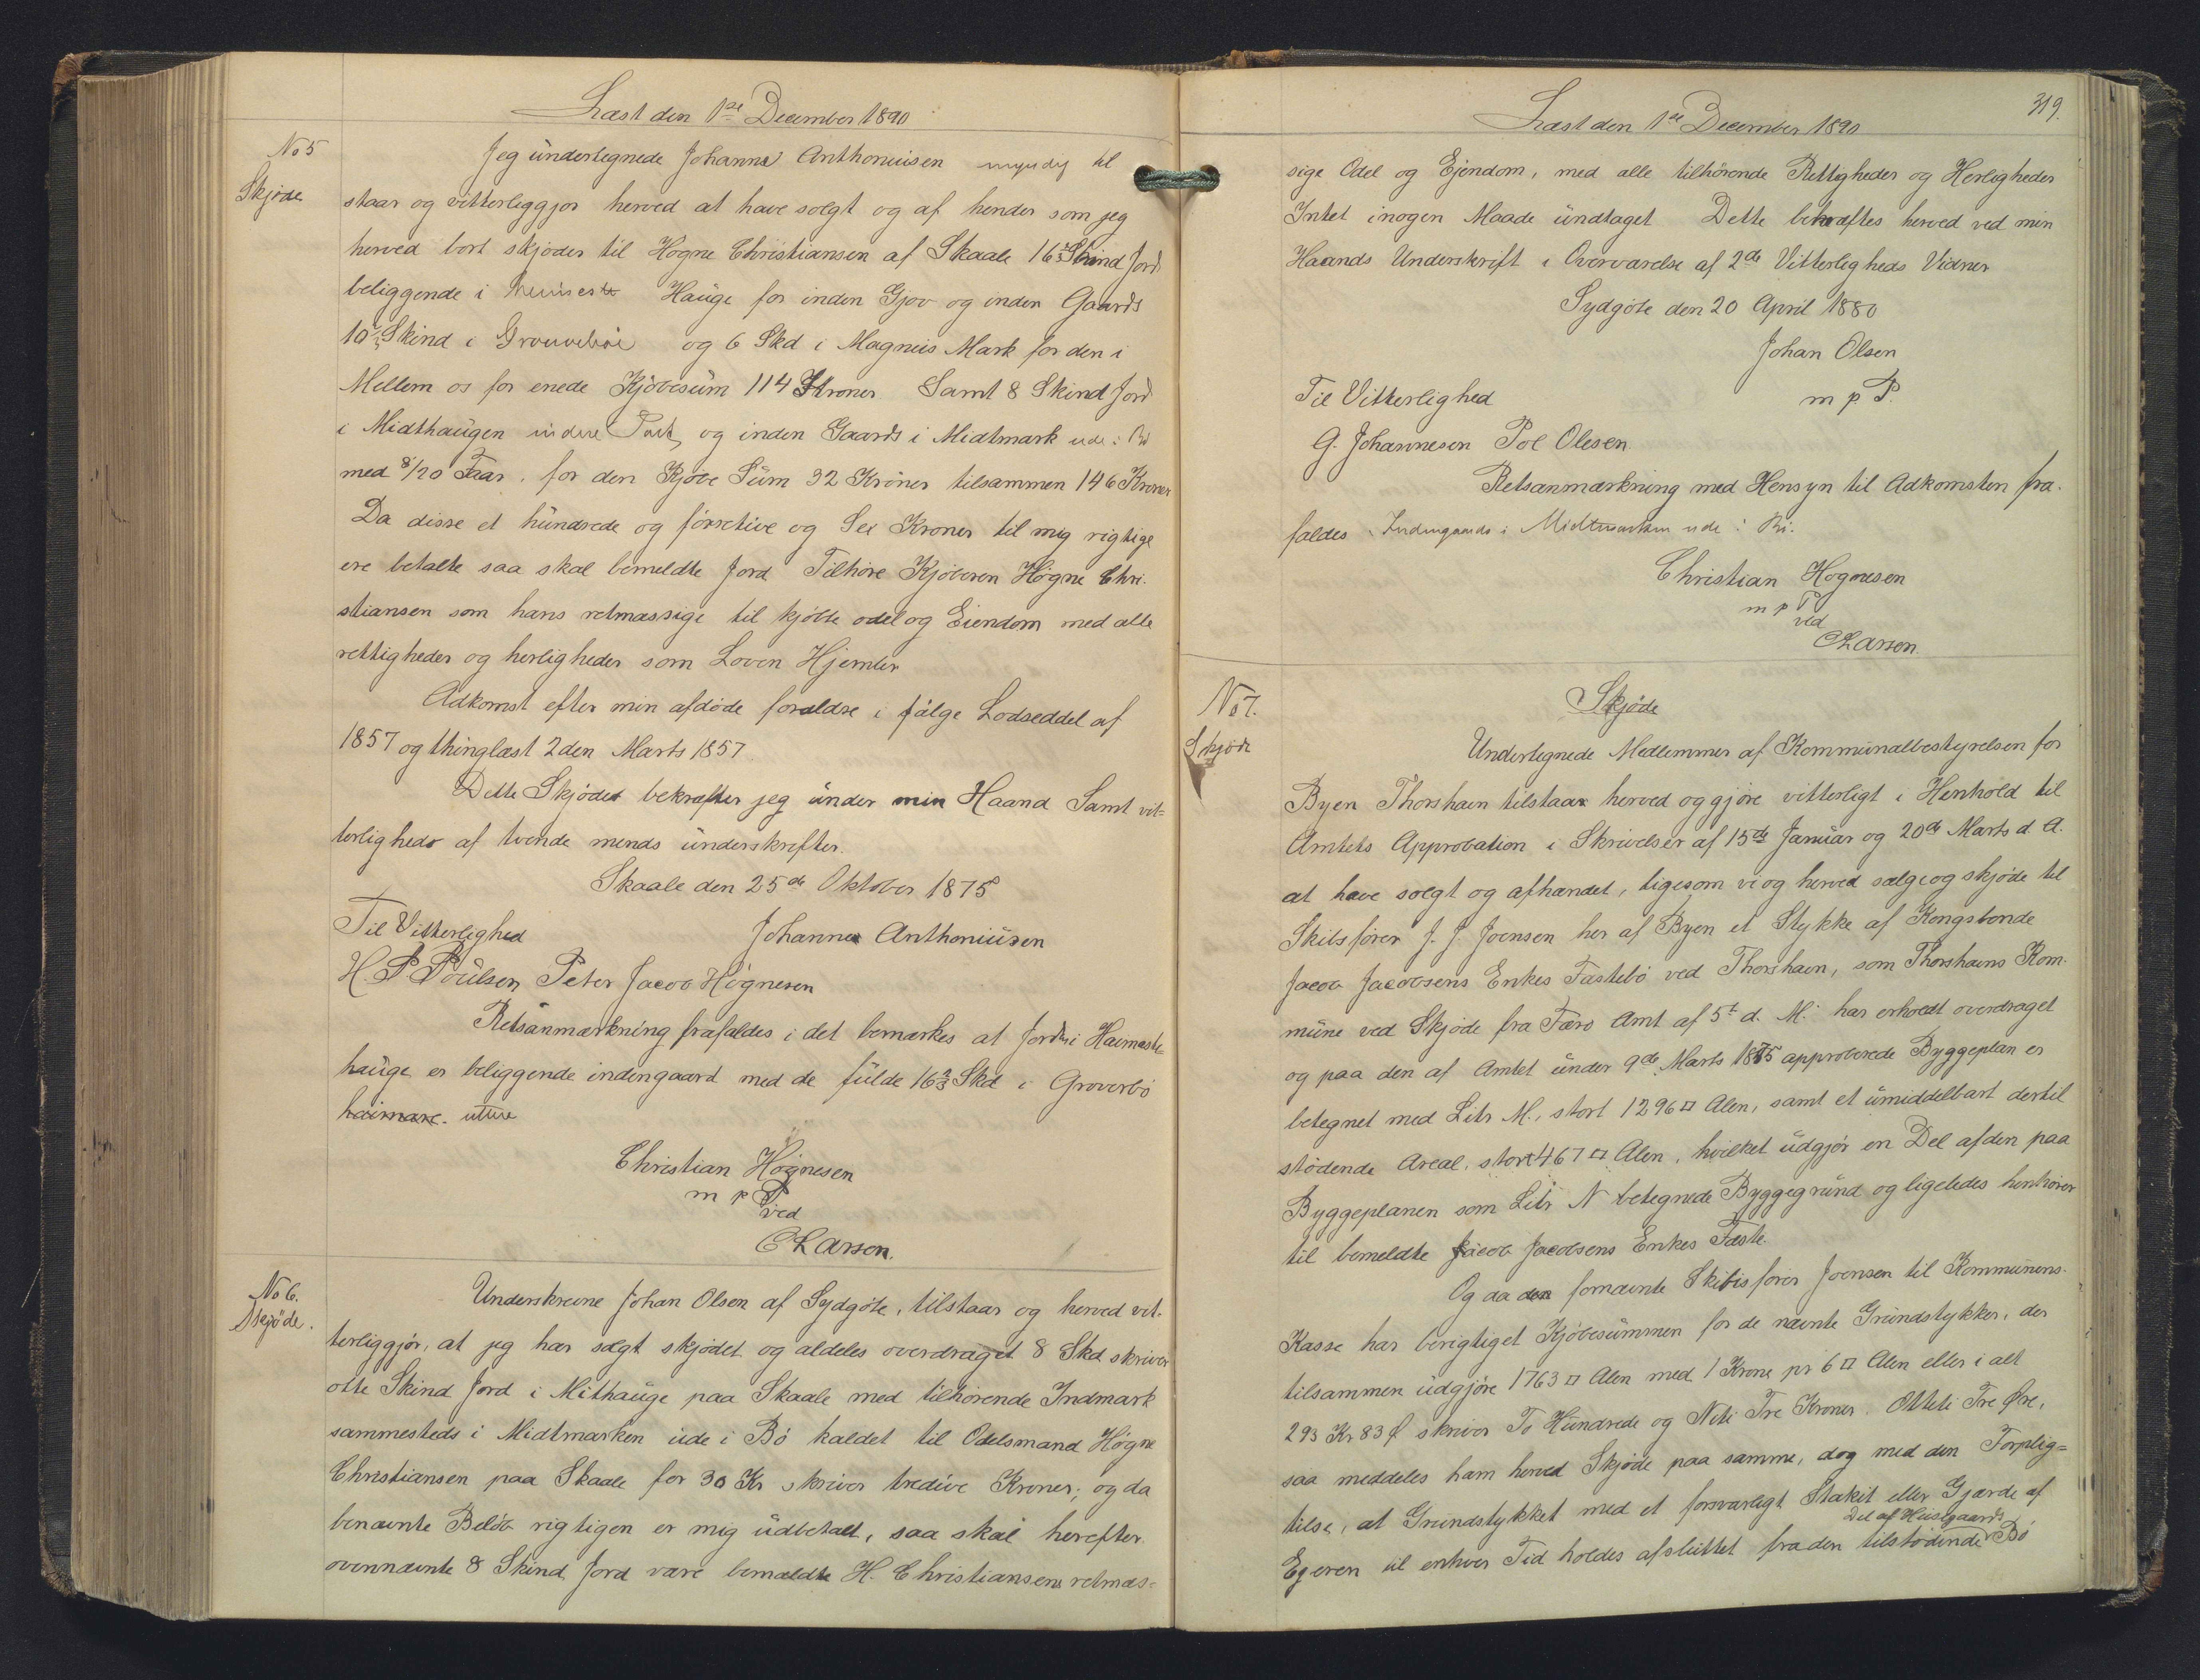 Læst den 1ste December 1890
No 5
Skjøde
Jeg undertegnede Johanna Anthoniusen myndig til
staar og vitterliggjør herved at have solgt og af hender som jeg
herved bort skjøder til Høgne Christiansen af Skaale 16 2/3 Skind Jord
beliggende i Heimeste Hauge for inden Gjov og inden Gaards
10 2/3 Skind i Grouvebøe og 6 Skd i Magnus Mark for den i
Mellem os for enede Kjøbesum 114 Kroner Samt 8 Skind Jord
i Midthaugen indere Part, og inden Gaards i Midtmark ude i Bø
med 8/20 Faar, for den Kjøbe Sum 32 Kroner tilsammen 146 Kroner
Da disse et hundrede og førretive og Sex Kroner til mig rigtige
ere betalte saa skal bemeldte Jord Tilhøre Kjøberen Høgne Chri-
stiansen som hans retmæssige til kjøbte odel og Eiendom med alle
rettigheder og herligheder som Loven Hjemler
Adkomst efter min afdøde forældre i følge Lodseddel af
1857 og thinglæst 2den Marts 1857.
Dette Skjødet bekræfter jeg under min Haand Samt vit=
terligheds af tvende mends underskrefter.
Skaale den 25de Oktober 1875
Til Vitterlighed Johanna Anthoniusen
H. P. Poulsen Peter Jacob Høgnesen
Retsanmærkning frafaldes i det bemærkes at Jorden i Haimaste=
hauge er beliggende indengaard med de fulde 16 2/3 Skd i Groverbø
haimare. uttere
Christian Høgnesen
m p P
ved
C Larsen.
No 6.
Skjøde.
Underskrevne Johan Olsen af Sydgøte, tilstaar og herved vit-
terliggjør, at jeg har solgt skjødet og aldeles overdraget 8 Skd skriver
otte Skind Jord i Mithauge paa Skaale med tilhørende Indmark
sammesteds i Midtmarken ude i Bø kaldet til Odelsmand Høgne
Christiansen paa Skaale for 30 Kr skriver tredive Kroner; og da
benævnte Beløb rigtigen er mig udbetalt, saa skal herefter
ovennævnte 8 Skind Jord være bemældte H. Christiansens retmæs=
319.
Læst den 1ste December 1890
sige Odel og Ejendom, med alle tilhørende Rettigheder og Herligheder
Intet inogen Maade undtaget Dette bekræftes herved ved min
Haands Underskrift i Overværelse af 2de Vitterligheds Vidner
Sydgøte den 20 April 1880
Johan Olsen
Til Vitterlighed m p. P.
G. Johannesen Pol Olesen.
Retsanmærkning med Hensyn til Adkomsten fra-
faldes. Indengaards i Midtmarken ude i Bø.
Christian Høgnesen
m p P
ved
C Larsen.
No 7.
Skjøde
Skjøde
Undertegnede Medlemmer af Kommunalbestyrelsen for
Byen Thorshavn tilstaar herved og gjøre vitterligt i Henhold til
Amtets Approbation i Skrivelser af 15de Januar og 20de Marts d. A.
at have solgt og afhændet, ligesom vi og herved sælge og skjøde til
Skibsfører J. J. Joensen her af Byen et Stykke af Kongsbonde
Jacob Jacobsens Enkes Fæstebø ved Thorshavn, som Thorshavns Kom-
mune ved Skjøde fra Færø Amt af 5t d. M. har erholdt overdraget
og paa den af Amtet under 9de Marts 1875 approberede Byggeplan er
betegnet med Litr M., stort 1296 □ Alen, samt et umiddelbart dertil
stødende Areal, stort 467 □ Alen, hvilket udgjør en Del af den paa
Byggeplanen som Litr N betegnede Byggegrund og ligeledes henhører
til bemeldte Jacob Jacobsens Enkes Fæste.
Og da den fornævnte Skibsfører Joensen til Kommunens-
Kasse har berigtiget Kjøbesummen for de nævnte Grundstykker, der
tilsammen udgjøre 1763 □ Alen med 1 Krone pr 6 □ Alen eller i alt
293 Kr 83 Ø skriver To Hundrede og Niti Tre Kroner. Otteti Tre Øre,
saa meddeles ham herved Skjøde paa samme, dog med den Forplig=
tilse, at Grundstykket med et forsvarligt Stakit eller Gjærde af
Del af Husgaards
Ejeren til enhver Tid holdes afsluttet fra den tilstødende Bø